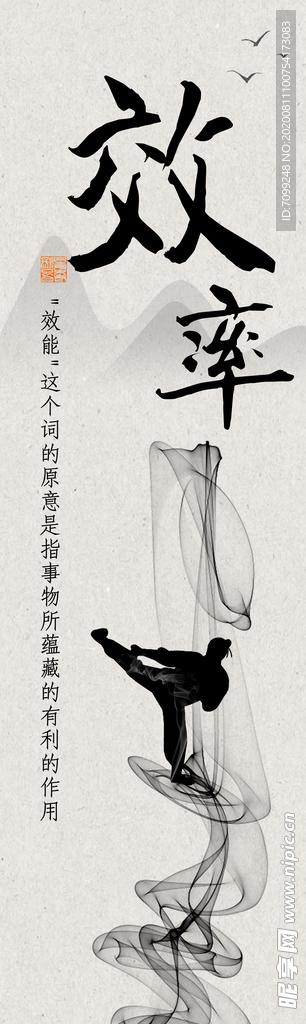 效率
"效能"这个词的原意是指事物所蕴藏的有利的作用
ID:7099248 NO:20200811100754173083
昵享网 www.nipic.cn